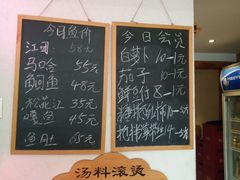 今日鱼价
江团 58元
马口鱼 55元
鮰鱼 48元
松花江 35元
嘎鱼 45元
鱼肚 65元
今日会员
白萝卜 10-1元
茄子 10-1元
鲜豆付 8-1元
汤料滚烫